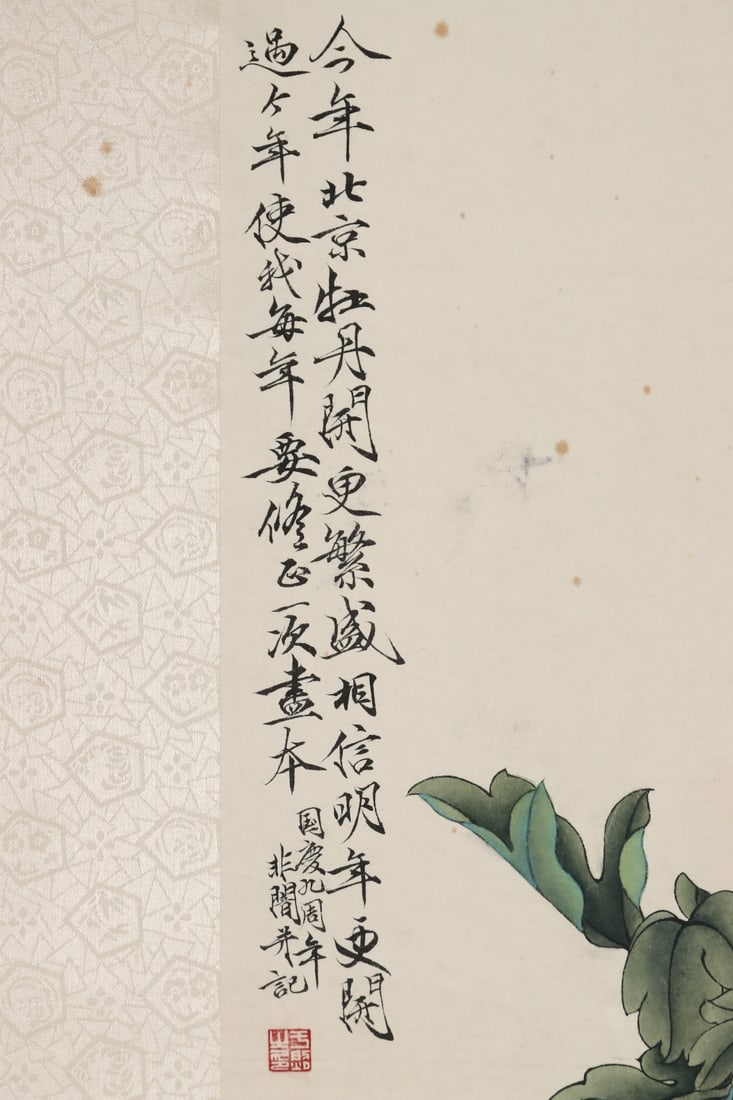 今年北京牡丹開更繁盛相信明年更開
過今年使我每年要修正一次畫本
国慶九周年
非闇并記